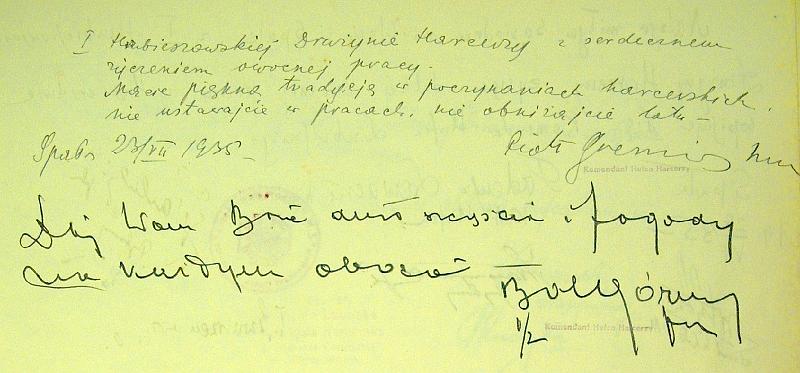 I Hrubieszowskiej Drużynie Harcerzy z serdecznem
życzeniem owocnej pracy.
Macie piękną tradycję w poczynaniach harcerskich,
nie ustawajcie w pracach, nie obniżajcie lotu –
Spała 23/VII 1935
Piotr
Komendant Hufca Harcerzy
Daj Wam Boże dużo szczęścia i pogody
na każdym obozie
Komendant Hufca Harcerzy